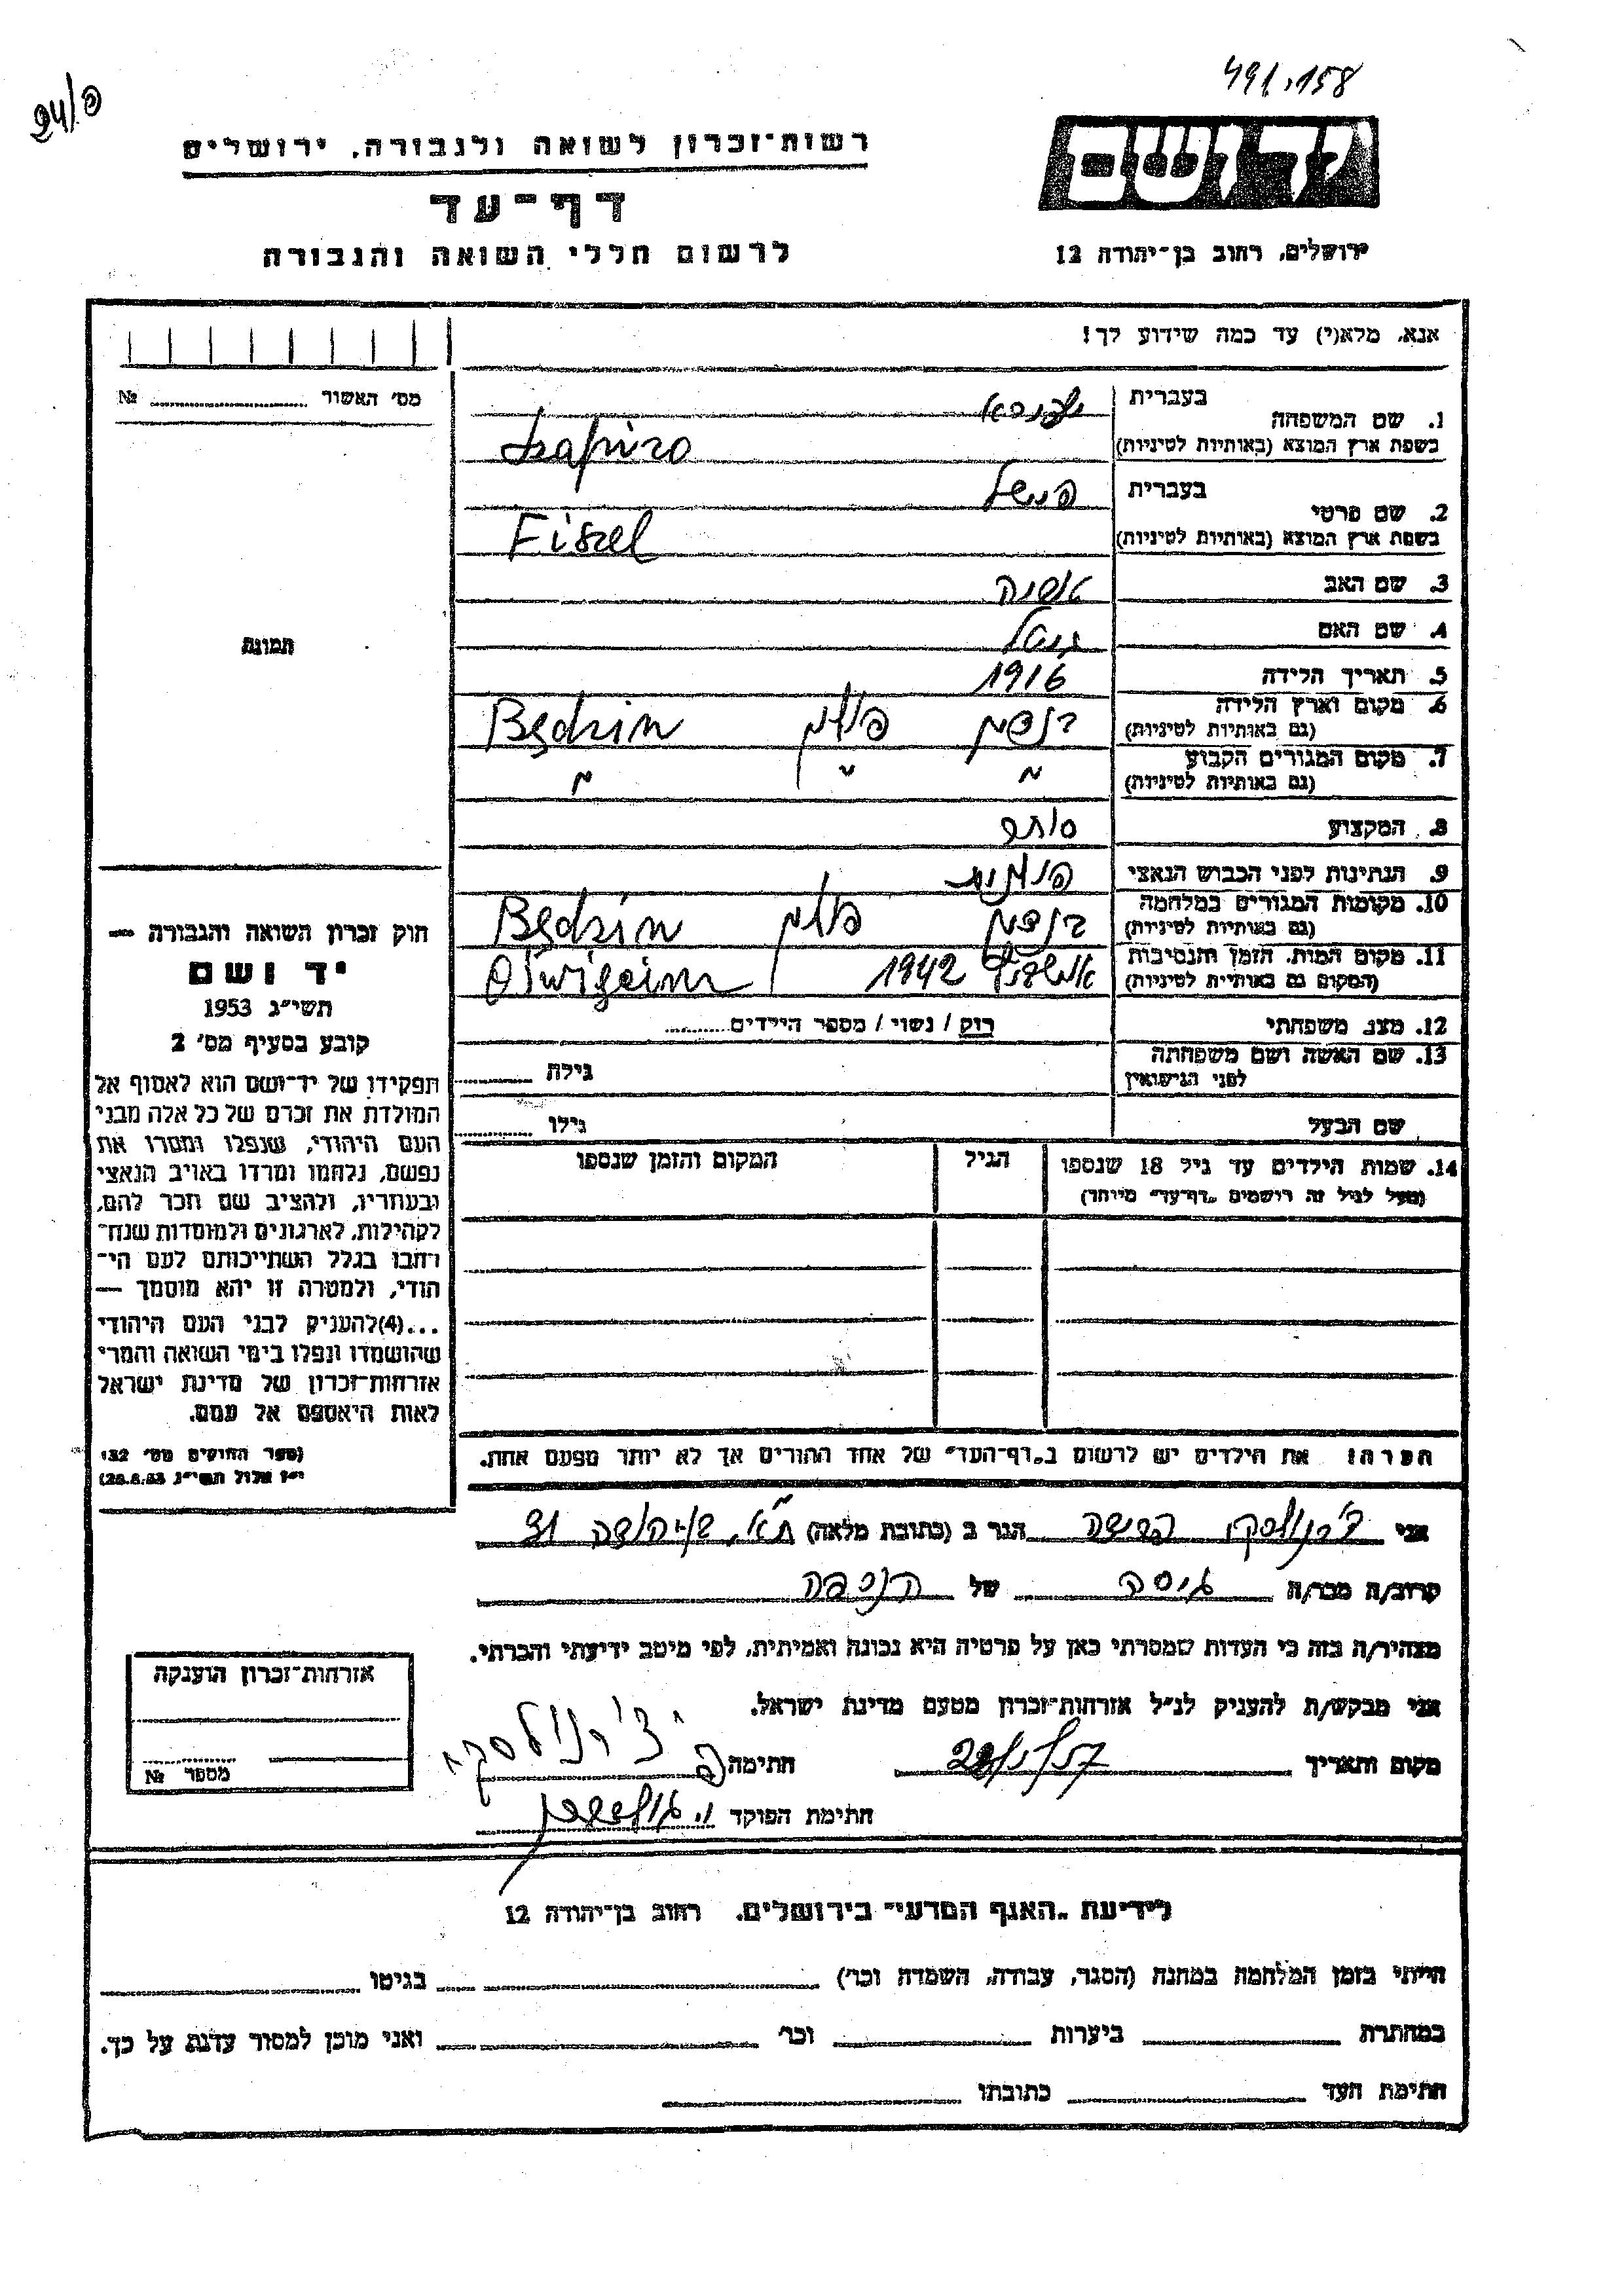 491,158
רשות־זכרון לשואה ולגבורה, ירושלים
יד ושם
דף־עד
ירושלים, רחוב בן־יהודה 12
לרשום חללי השואה והגבורה
אנא, מלא(י) עד כמה שידוע לך!
מס׳ האשור № 
1. שם המשפחה
בעברית שפירא
בשפת ארץ המוצא (באותיות לטיניות) Szapiro
2. שם פרטי
בעברית פישל
בשפת ארץ המוצא (באותיות לטיניות) Fiszel
3. שם האב
4. שם האם
5. תאריך הלידה 1916
6. מקום וארץ הלידה בנדין פולין Będzin
(גם באותיות לטיניות)
7. מקום המגורים הקבוע " " "
(גם באותיות לטיניות)
תמונה
8. המקצוע סוחר
9. הנתינות לפני הכבוש הנאצי פולנית
10. מקומות המגורים במלחמה בנדין פולין Będzin
(גם באותיות לטיניות)
11. מקום המות, הזמן והנסיבות אושויץ 1942 Oświęcim
(המקום גם באותיות לטיניות)
12. מצב משפחתי רוק / נשוי / מספר הילדים
13. שם האשה ושם משפחתה
לפני הנישואין גילה
שם הבעל גילו
14. שמות הילדים עד גיל 18 שנספו הגיל המקום והזמן שנספו
(מעל לגיל זה רושמים „דף־עד״ מיוחד)
חוק זכרון השואה והגבורה —
יד ושם
תשי״ג 1953
קובע בסעיף מס׳ 2
תפקידו של יד־ושם הוא לאסוף אל
המולדת את זכרם של כל אלה מבני
העם היהודי, שנפלו ומסרו את
נפשם, נלחמו ומרדו באויב הנאצי
ובעוזריו, ולהציב שם וזכר להם,
לקהילות, לארגונים ולמוסדות שנח־
רבו בגלל השתייכותם לעם הי־
הודי, ולמטרה זו יהא מוסמך —
...(4)להעניק לבני העם היהודי
שהושמדו ונפלו בימי השואה והמרי
אזרחות־זכרון של מדינת ישראל
לאות היאספם אל עמם.
(ספר החוקים מס׳ 132
י״ז אלול תשי״ג 28.8.53)
הערה: את הילדים יש לרשום ב„דף־העד״ של אחד ההורים אך לא יותר מפעם אחת.
אני הגר ב (כתובת מלאה) ת״א, בן יהודה 31
קרוב/ה מכר/ה גיסה של הנספה
מצהיר/ה בזה כי העדות שמסרתי כאן על פרטיה היא נכונה ואמיתית, לפי מיטב ידיעתי והכרתי.
אני מבקש/ת להעניק לנ״ל אזרחות־זכרון מטעם מדינת ישראל.
מקום ותאריך חתימה
חתימת הפוקד
אזרחות־זכרון הוענקה
מספר №
לידיעת „האגף המדעי״ בירושלים, רחוב בן־יהודה 12
הייתי בזמן המלחמה במחנה (הסגר, עבודה, השמדה וכר׳) בגיטו
במחתרת ביערות וכר׳ ואני מוכן למסור עדות על כך.
חתימת העד כתובתו